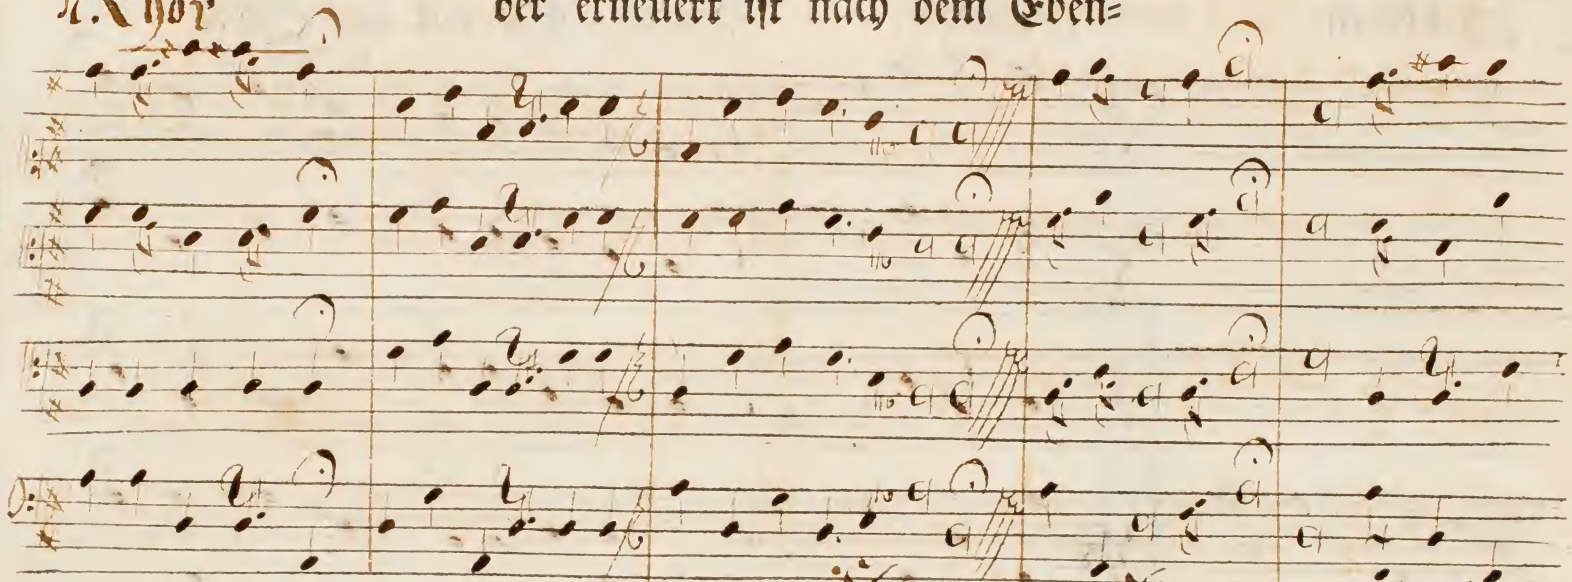 1. Chor
der erneuert ist nach dem Eben=